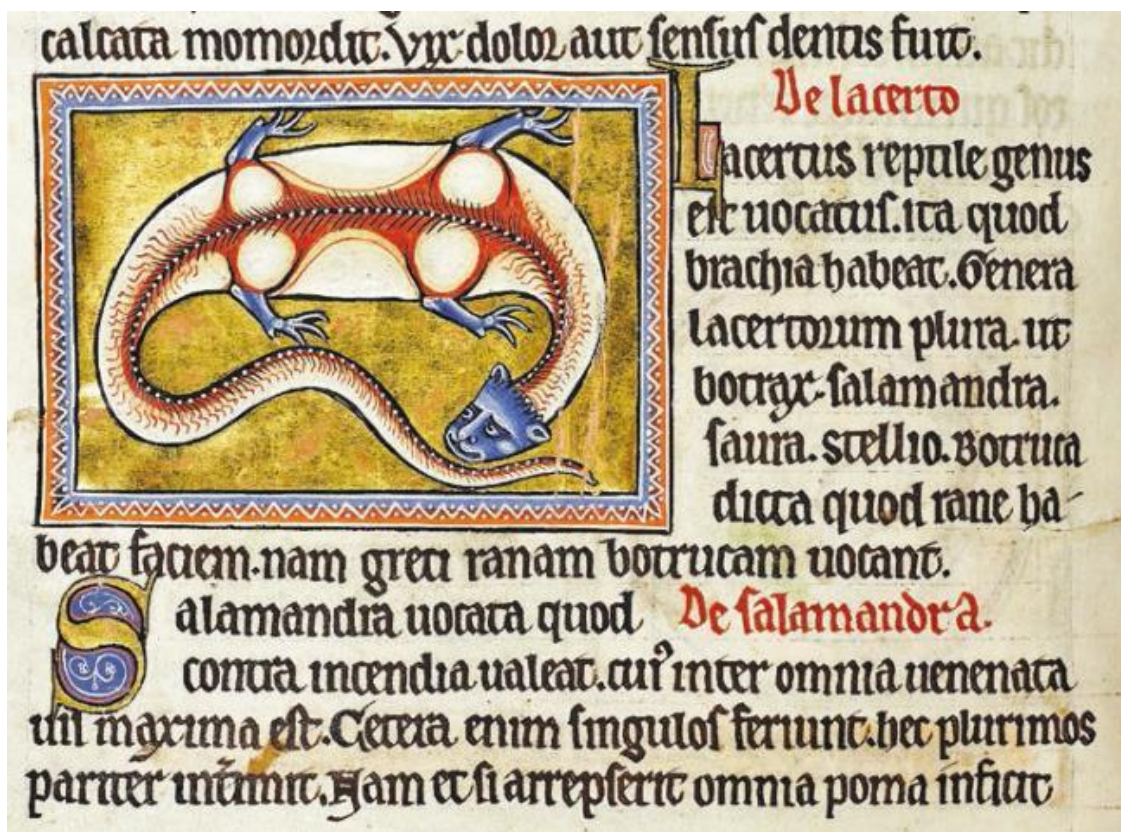 calcata momordit. Vix dolor aut sensus dentis fuit.
De lacerto
Lacertus reptile genus
est uocatus. ita quod
brachia habeat. Genera
lacertorum plura. ut
botrax. salamandra.
saura. stellio. Botruca
dicta quod rane ha-
beat faciem. nam greci ranam botrucam uocant.
Salamandra uocata quod De salamandra.
contra incendia ualeat. cuiꝰ inter omnia uenenata
uis maxima est. Cetera enim singulos feriunt. hec plurimos
pariter intimit. Nam et si arrepserit omnia poma inficit